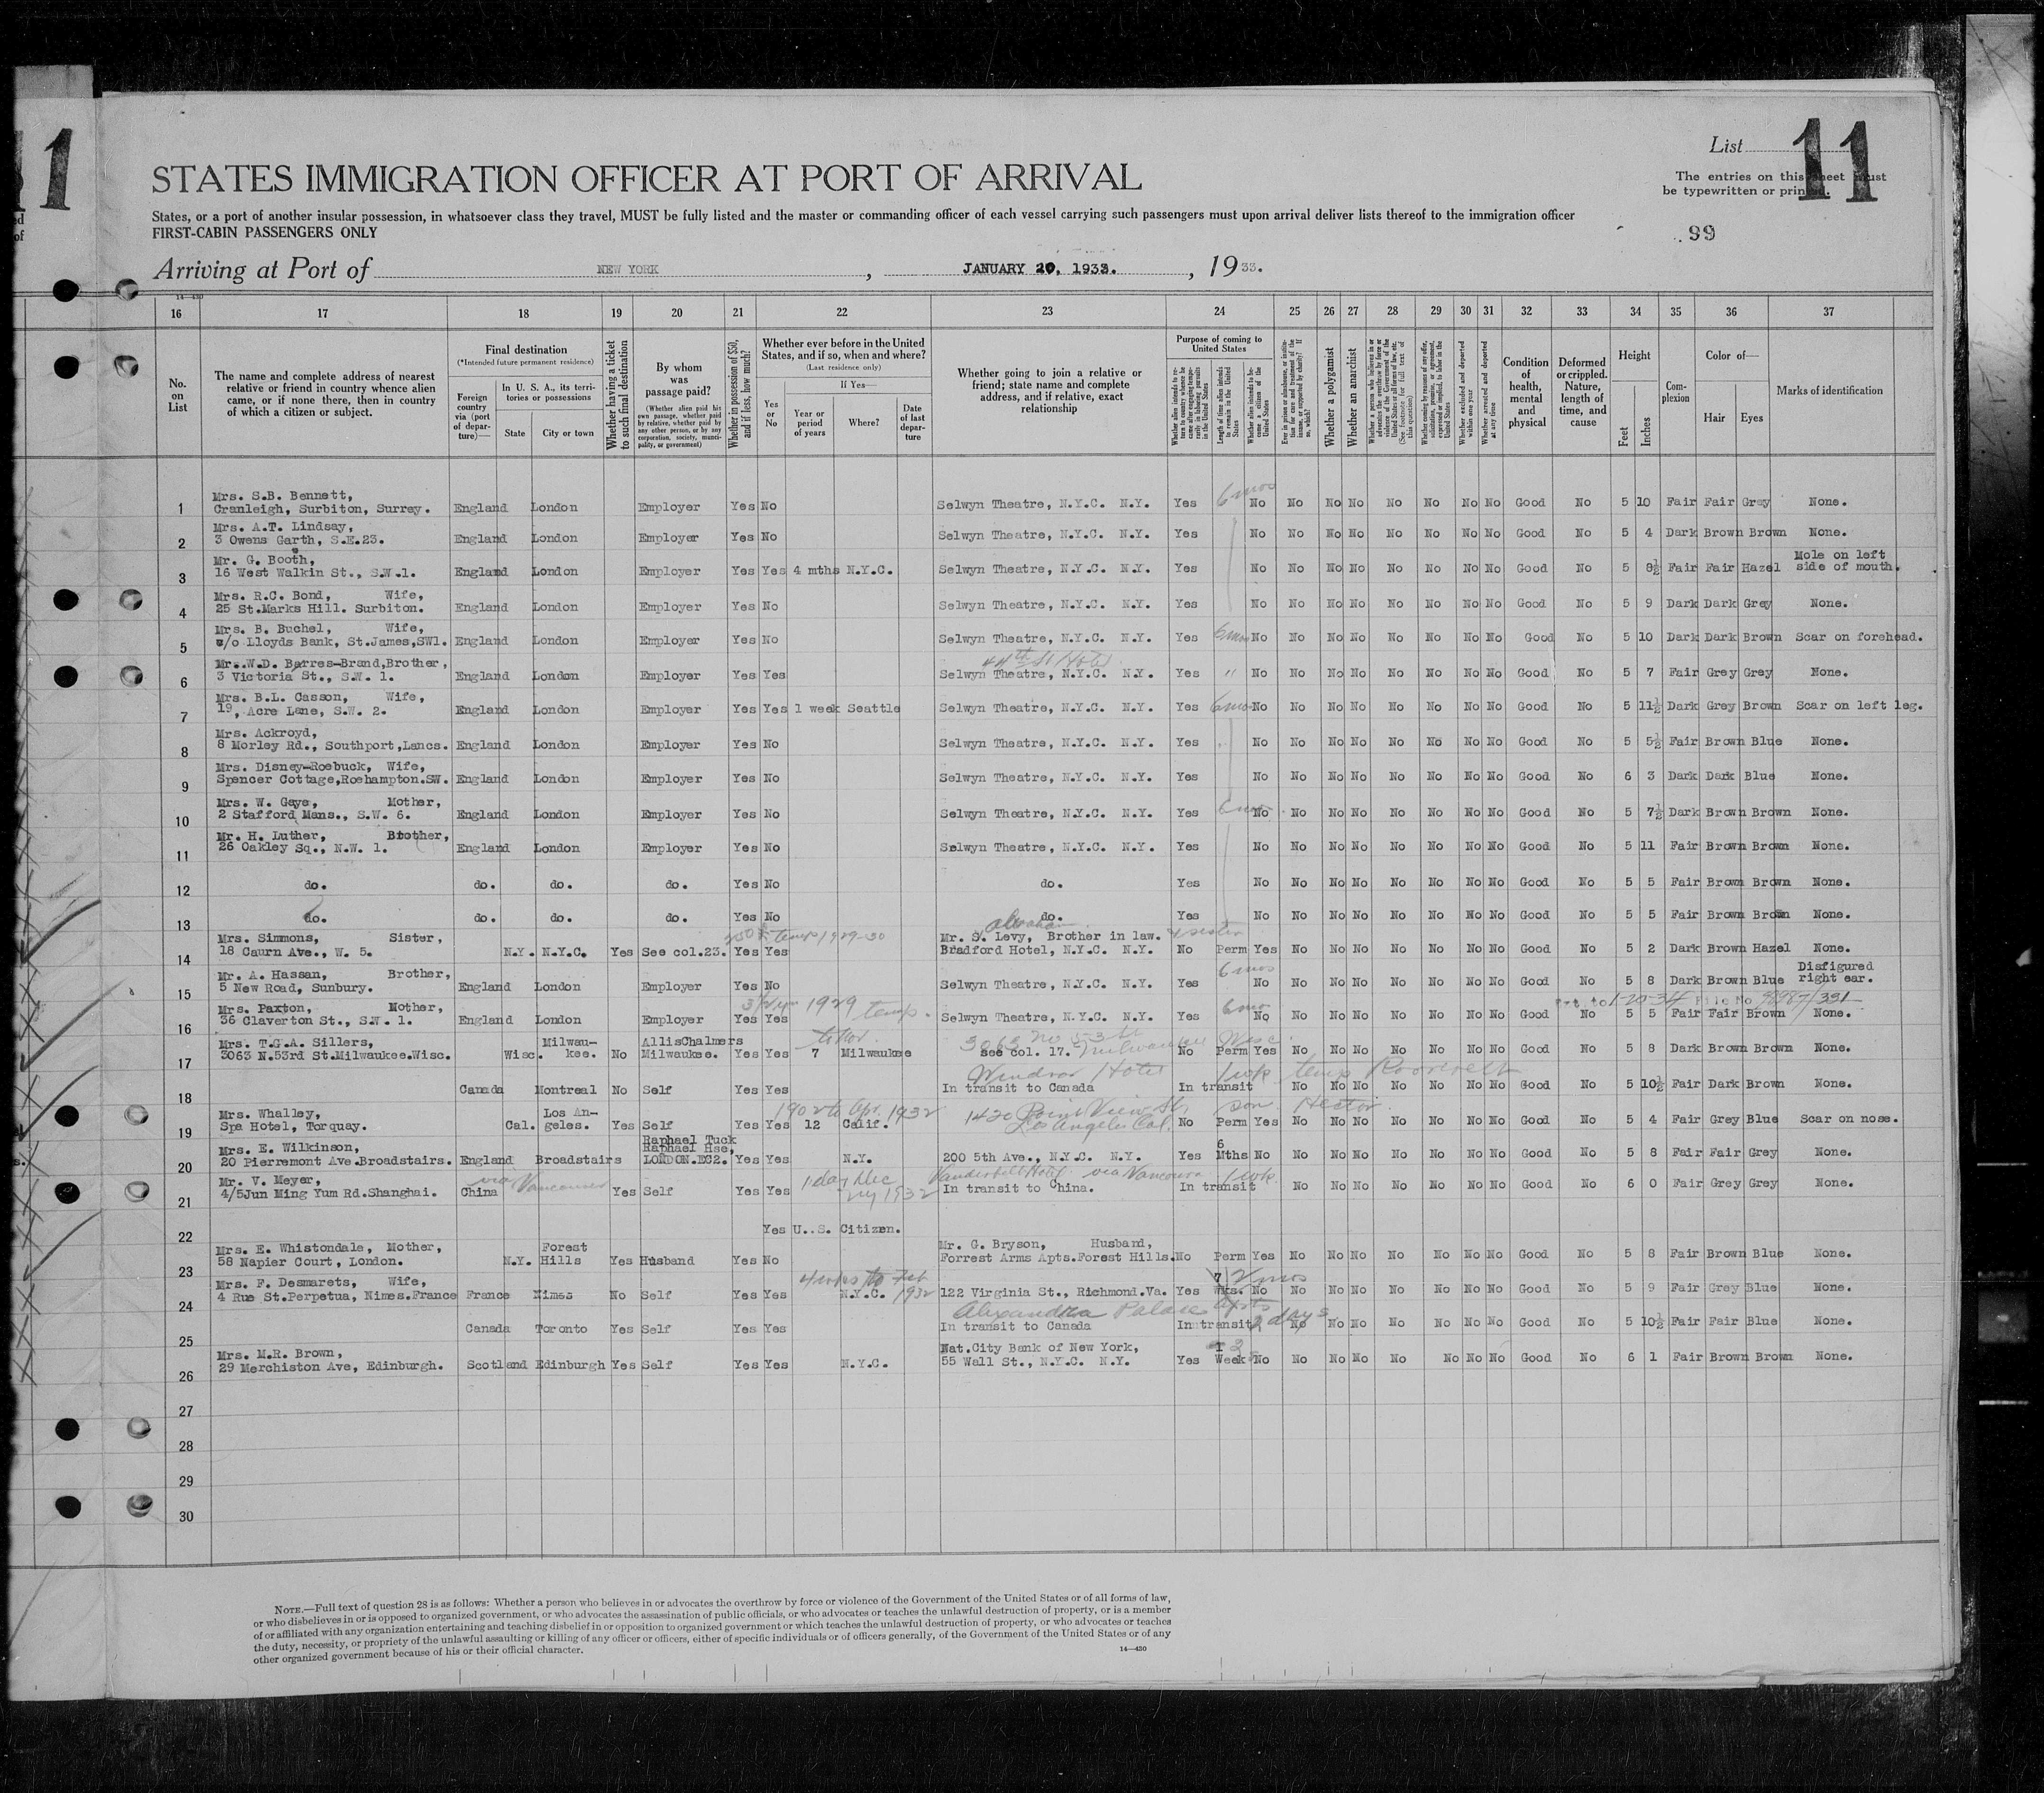 11
List 11
STATES IMMIGRATION OFFICER AT PORT OF ARRIVAL
The entries on this sheet must
be typewritten or printed.
States, or a port of another insular possession, in whatsoever class they travel, MUST be fully listed and the master or commanding officer of each vessel carrying such passengers must upon arrival deliver lists thereof to the immigration officer
FIRST-CABIN PASSENGERS ONLY
99
Arriving at Port of NEW YORK, JANUARY 20, 1933., 1933.
14—430
16 17 18 19 20 21 22 23 24 25 26 27 28 29 30 31 32 33 34 35 36 37
No. on List
The name and complete address of nearest relative or friend in country whence alien came, or if none there, then in country of which a citizen or subject.
Final destination
(*Intended future permanent residence)
Foreign country via (port of departure)—
In U. S. A., its territories or possessions
State
City or town
Whether having a ticket to such final destination
By whom was passage paid?
(Whether alien paid his own passage, whether paid by relative, whether paid by any other person, or by any corporation, society, municipality, or government)
Whether in possession of $50, and if less, how much?
Whether ever before in the United States, and if so, when and where?
(Last residence only)
Yes or No
If Yes—
Year or period of years
Where?
Date of last departure
Whether going to join a relative or friend; state name and complete address, and if relative, exact relationship
Purpose of coming to United States
Whether alien intends to return to country whence he came after engaging temporarily in laboring pursuits in the United States
Length of time alien intends to remain in the United States
Whether alien intends to become a citizen of the United States
Ever in prison or almshouse, or institution for care and treatment of the insane, or supported by charity? If so, which?
Whether a polygamist
Whether an anarchist
Whether a person who believes in or advocates the overthrow by force or violence of the Government of the United States or all forms of law, etc. (See footnote for full text of this question)
Whether coming by reasons of any offer, solicitation, promise, or agreement, expressed or implied, to labor in the United States
Whether excluded and deported within one year
Whether arrested and deported at any time
Condition of health, mental and physical
Deformed or crippled. Nature, length of time, and cause
Height
Feet
Inches
Complexion
Color of—
Hair
Eyes
Marks of identification
1 Mrs. S.B. Bennett, Cranleigh, Surbiton, Surrey. England London Employer Yes No Selwyn Theatre, N.Y.C. N.Y. Yes 6 mos No No No No No No No No Good No 5 10 Fair Fair Grey None.
2 Mrs. A.T. Lindsay, 3 Owens Garth, S.E.23. England London Employer Yes No Selwyn Theatre, N.Y.C. N.Y. Yes No No No No No No No No Good No 5 4 Dark Brown Brown None.
3 Mr. G. Booth, 16 West Walkin St., S.W.1. England London Employer Yes Yes 4 mths N.Y.C. Selwyn Theatre, N.Y.C. N.Y. Yes No No No No No No No No Good No 5 8½ Fair Fair Hazel Mole on left side of mouth.
4 Mrs. R.C. Bond, Wife, 25 St.Marks Hill. Surbiton. England London Employer Yes No Selwyn Theatre, N.Y.C. N.Y. Yes No No No No No No No No Good No 5 9 Dark Dark Grey None.
5 Mrs. B. Buchel, Wife, c/o Lloyds Bank, St.James,SW1. England London Employer Yes No Selwyn Theatre, N.Y.C. N.Y. Yes 6mos No No No No No No No No Good No 5 10 Dark Dark Brown Scar on forehead.
6 Mr..W.D. Barres-Brand,Brother, 3 Victoria St., S.W. 1. England London Employer Yes Yes 44th St Hotel Selwyn Theatre, N.Y.C. N.Y. Yes " No No No No No No No No Good No 5 7 Fair Grey Grey None.
7 Mrs. B.L. Casson, Wife, 19, Acre Lane, S.W. 2. England London Employer Yes Yes 1 week Seattle Selwyn Theatre, N.Y.C. N.Y. Yes 6mos No No No No No No No No Good No 5 11½ Dark Grey Brown Scar on left leg.
8 Mrs. Ackroyd, 8 Morley Rd., Southport,Lancs. England London Employer Yes No Selwyn Theatre, N.Y.C. N.Y. Yes No No No No No No No No Good No 5 5½ Fair Brown Blue None.
9 Mrs. Disney-Roebuck, Wife, Spencer Cottage,Roehampton.SW. England London Employer Yes No Selwyn Theatre, N.Y.C. N.Y. Yes No No No No No No No No Good No 6 3 Dark Dark Blue None.
10 Mrs. W. Gaye, Mother, 2 Stafford Mans., S.W. 6. England London Employer Yes No Selwyn Theatre, N.Y.C. N.Y. Yes 6 mos No No No No No No No No Good No 5 7½ Dark Brown Brown None.
11 Mr. H. Luther, Brother, 26 Oakley Sq., N.W. 1. England London Employer Yes No Selwyn Theatre, N.Y.C. N.Y. Yes No No No No No No No No Good No 5 11 Fair Brown Brown None.
12 do. do. do. do. Yes No do. Yes No No No No No No No No Good No 5 5 Fair Brown Brown None.
13 do. do. do. do. Yes No do. Yes No No No No No No No No Good No 5 5 Fair Brown Brown None.
14 Mrs. Simmons, Sister, 18 Caurn Ave., W. 5. N.Y. N.Y.C. Yes See col.23. Yes Yes temp 1929-30 Abraham Mr. S. Levy, Brother in law. & sister Bradford Hotel, N.Y.C. N.Y. No Perm Yes No No No No No No No Good No 5 2 Dark Brown Hazel None.
15 Mr. A. Hassan, Brother, 5 New Road, Sunbury. England London Employer Yes No Selwyn Theatre, N.Y.C. N.Y. Yes 6 mos No No No No No No No No Good No 5 8 Dark Brown Blue Disfigured right ear.
16 Mrs. Paxton, Mother, 36 Claverton St., S.W. 1. England London Employer Yes Yes 1929 temp. Selwyn Theatre, N.Y.C. N.Y. Yes 6mo No No No No No No No No Good No 5 5 Fair Fair Brown None. to 1-20-34 File No 98987/391
17 Mrs. T.G.A. Sillers, 3063 N.53rd St.Milwaukee.Wisc. Wisc. Milwaukee. No AllisChalmers Milwaukee. Yes Yes 7 Milwaukee 3063 No 53 St Milwaukee Wisc. see col. 17. No Perm Yes No No No No No No No Good No 5 8 Dark Brown Brown None.
18 Canada Montreal No Self Yes Yes Windsor Hotel In transit to Canada In transit 1wk temp Roosevelt No No No No No No No Good No 5 10½ Fair Dark Brown None.
19 Mrs. Whalley, Spa Hotel, Torquay. Cal. Los Angeles. Yes Self Yes Yes 1902 to Apr 1932 12 Calif. 1420 Point View St, Los Angeles Cal. son Hector. No Perm Yes No No No No No No No Good No 5 4 Fair Grey Blue Scar on nose.
20 Mrs. E. Wilkinson, 20 Pierremont Ave.Broadstairs. England Broadstairs Raphael Tuck Raphael Hse, LONDON.EC2. Yes Yes N.Y. 200 5th Ave., N.Y.C. N.Y. Yes 6 Mths No No No No No No No No Good No 5 8 Fair Fair Grey None.
21 Mr. V. Meyer, 4/5Jun Ming Yum Rd.Shanghai. China via Vancouver Yes Self Yes Yes 1 day Dec ny 1932 Vanderbilt Hotel via Vancouver 1wk. In transit to China. In transit No No No No No No No Good No 6 0 Fair Grey Grey None.
22 Yes U..S. Citizen.
23 Mrs. E. Whistondale, Mother, 58 Napier Court, London. N.Y. Forest Hills Yes Husband Yes No Mr. G. Bryson, Husband, Forrest Arms Apts.Forest Hills. No Perm Yes No No No No No No No Good No 5 8 Fair Brown Blue None.
24 Mrs. F. Desmarets, Wife, 4 Rue St.Perpetua, Nimes.France France Nimes No Self Yes Yes 4 wks to Feb 1932 N.Y.C. 122 Virginia St., Richmond.Va. Yes 7 Wks. 2 mos No No No No No No No No Good No 5 9 Fair Grey Blue None.
25 Canada Toronto Yes Self Yes Yes Alexandra Palace Apts In transit to Canada In transit 2 days No No No No No No No Good No 5 10½ Fair Fair Blue None.
26 Mrs. M.R. Brown, 29 Merchiston Ave, Edinburgh. Scotland Edinburgh Yes Self Yes Yes N.Y.C. Nat.City Bank of New York, 55 Wall St., N.Y.C. N.Y. Yes Week No No No No No No No No Good No 6 1 Fair Brown Brown None.
27
28
29
30
NOTE.—Full text of question 28 is as follows: Whether a person who believes in or advocates the overthrow by force or violence of the Government of the United States or of all forms of law,
or who disbelieves in or is opposed to organized government, or who advocates the assassination of public officials, or who advocates or teaches the unlawful destruction of property, or is a member
of or affiliated with any organization entertaining and teaching disbelief in or opposition to organized government or which teaches the unlawful destruction of property, or who advocates or teaches
the duty, necessity, or propriety of the unlawful assaulting or killing of any officer or officers, either of specific individuals or of officers generally, of the Government of the United States or of any
other organized government because of his or their official character.
14—430